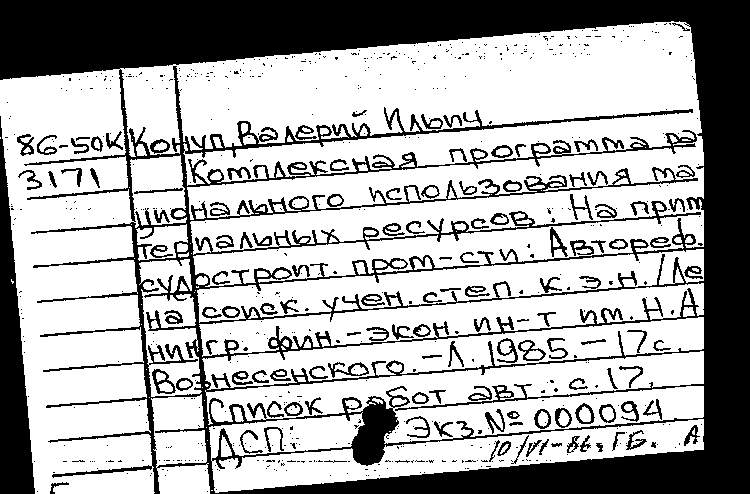 86-50К Конуп, Валерий Ильич.
3171 Комплексная программа ра-
ционального использования ма-
териальных ресурсов: На прим
судостроит. пром-сти: Автореф.
на соиск. учен. степ. к.э.н. /Ле
нингр. фин.-экон. ин-т им. Н.А
Вознесенского. -Л., 1985. - 17с.
Список работ авт.: с.17.
ДСП: Экз.№ 000094
10/VI-86, ГБ. А